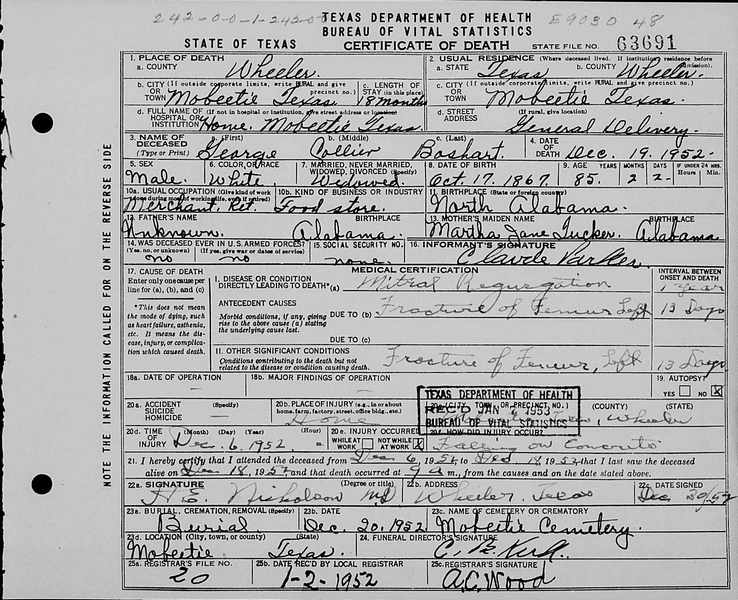 242-0-0-1-242-0 TEXAS DEPARTMENT OF HEALTH E9030 48
BUREAU OF VITAL STATISTICS
STATE OF TEXAS CERTIFICATE OF DEATH STATE FILE NO. 63691
1. PLACE OF DEATH 2. USUAL RESIDENCE (Where deceased lived. If institution: residence before admission).
a. COUNTY Wheeler. a. STATE Texas b. COUNTY Wheeler.
b. CITY (If outside corporate limits, write RURAL and give precinct no.) c. LENGTH OF STAY (in this place) c. CITY (If outside corporate limits, write RURAL and give precinct no.)
OR TOWN Mobeetie Texas. 18 months OR TOWN Mobeetie Texas.
d. FULL NAME OF (If not in hospital or institution, give street address or location) d. STREET ADDRESS (If rural, give location)
HOSPITAL OR INSTITUTION Home. Mobeetie Texas General Delivery.
3. NAME OF DECEASED (Type or Print) a. (First) b. (Middle) c. (Last) 4. DATE OF DEATH
George Collier Boshart. Dec. 19. 1952.
5. SEX 6. COLOR OR RACE 7. MARRIED, NEVER MARRIED, WIDOWED, DIVORCED (Specify) 8. DATE OF BIRTH 9. AGE YEARS MONTHS DAYS IF UNDER 24 HRS. Hours Min.
Male. White Widowed. Oct 17. 1867. 85. 2 2
10a. USUAL OCCUPATION (Give kind of work done during most of working life, even if retired) 10b. KIND OF BUSINESS OR INDUSTRY 11. BIRTHPLACE (State or foreign country)
Merchant. Ret. Food store. North Alabama.
12. FATHER'S NAME BIRTHPLACE 13. MOTHER'S MAIDEN NAME BIRTHPLACE
Unknown. Alabama. Martha Jane Tucker. Alabama
14. WAS DECEASED EVER IN U.S. ARMED FORCES? 15. SOCIAL SECURITY NO. 16. INFORMANT'S SIGNATURE
(Yes, no, or unknown) (If yes, give war or dates of service)
no no none. Claude
MEDICAL CERTIFICATION
17. CAUSE OF DEATH
Enter only one cause per line for (a), (b), and (c)
*This does not mean the mode of dying, such as heart failure, asthenia, etc. It means the disease, injury, or complication which caused death.
I. DISEASE OR CONDITION DIRECTLY LEADING TO DEATH* (a) Mitral INTERVAL BETWEEN ONSET AND DEATH 1 year
ANTECEDENT CAUSES
Morbid conditions, if any, giving rise to the above cause (a) stating the underlying cause last.
DUE TO (b) Fracture of Femur Left 13 Days
DUE TO (c)
II. OTHER SIGNIFICANT CONDITIONS
Conditions contributing to the death but not related to the disease or condition causing death.
Fracture of Femur, Left 13 Days
18a. DATE OF OPERATION 18b. MAJOR FINDINGS OF OPERATION 19. AUTOPSY?
— — YES NO X
TEXAS DEPARTMENT OF HEALTH
REC'D JAN 1953
BUREAU OF VITAL STATISTICS
20a. ACCIDENT SUICIDE HOMICIDE 20b. PLACE OF INJURY (e.g., in or about home, farm, factory, street, office bldg., etc.) (COUNTY) (STATE)
— Home Wheeler
20d. TIME OF INJURY (Month) (Day) (Year) (Hour) 20e. INJURY OCCURRED 20f. HOW DID INJURY OCCUR?
Dec. 6. 1952 WHILE AT WORK NOT WHILE AT WORK X on Concrete
21. I hereby certify that I attended the deceased from Dec 6, 1952, to 19, 1952, that I last saw the deceased
alive on Dec 18, 1952 and that death occurred at m., from the causes and on the date stated above.
22a. SIGNATURE (Degree or title) 22b. ADDRESS 22c. DATE SIGNED
H.E. Nicholson MD Wheeler, Texas Dec 20/52
23a. BURIAL, CREMATION, REMOVAL (Specify) 23b. DATE 23c. NAME OF CEMETERY OR CREMATORY
Burial Dec. 20. 1952 Mobeetie Cemetery.
23d. LOCATION (City, town, or county) (State) 24. FUNERAL DIRECTOR'S SIGNATURE
Mobeetie Texas.
25a. REGISTRAR'S FILE NO. 25b. DATE REC'D BY LOCAL REGISTRAR 25c. REGISTRAR'S SIGNATURE
20 1-2-1952 A.C. Wood
NOTE THE INFORMATION CALLED FOR ON THE REVERSE SIDE